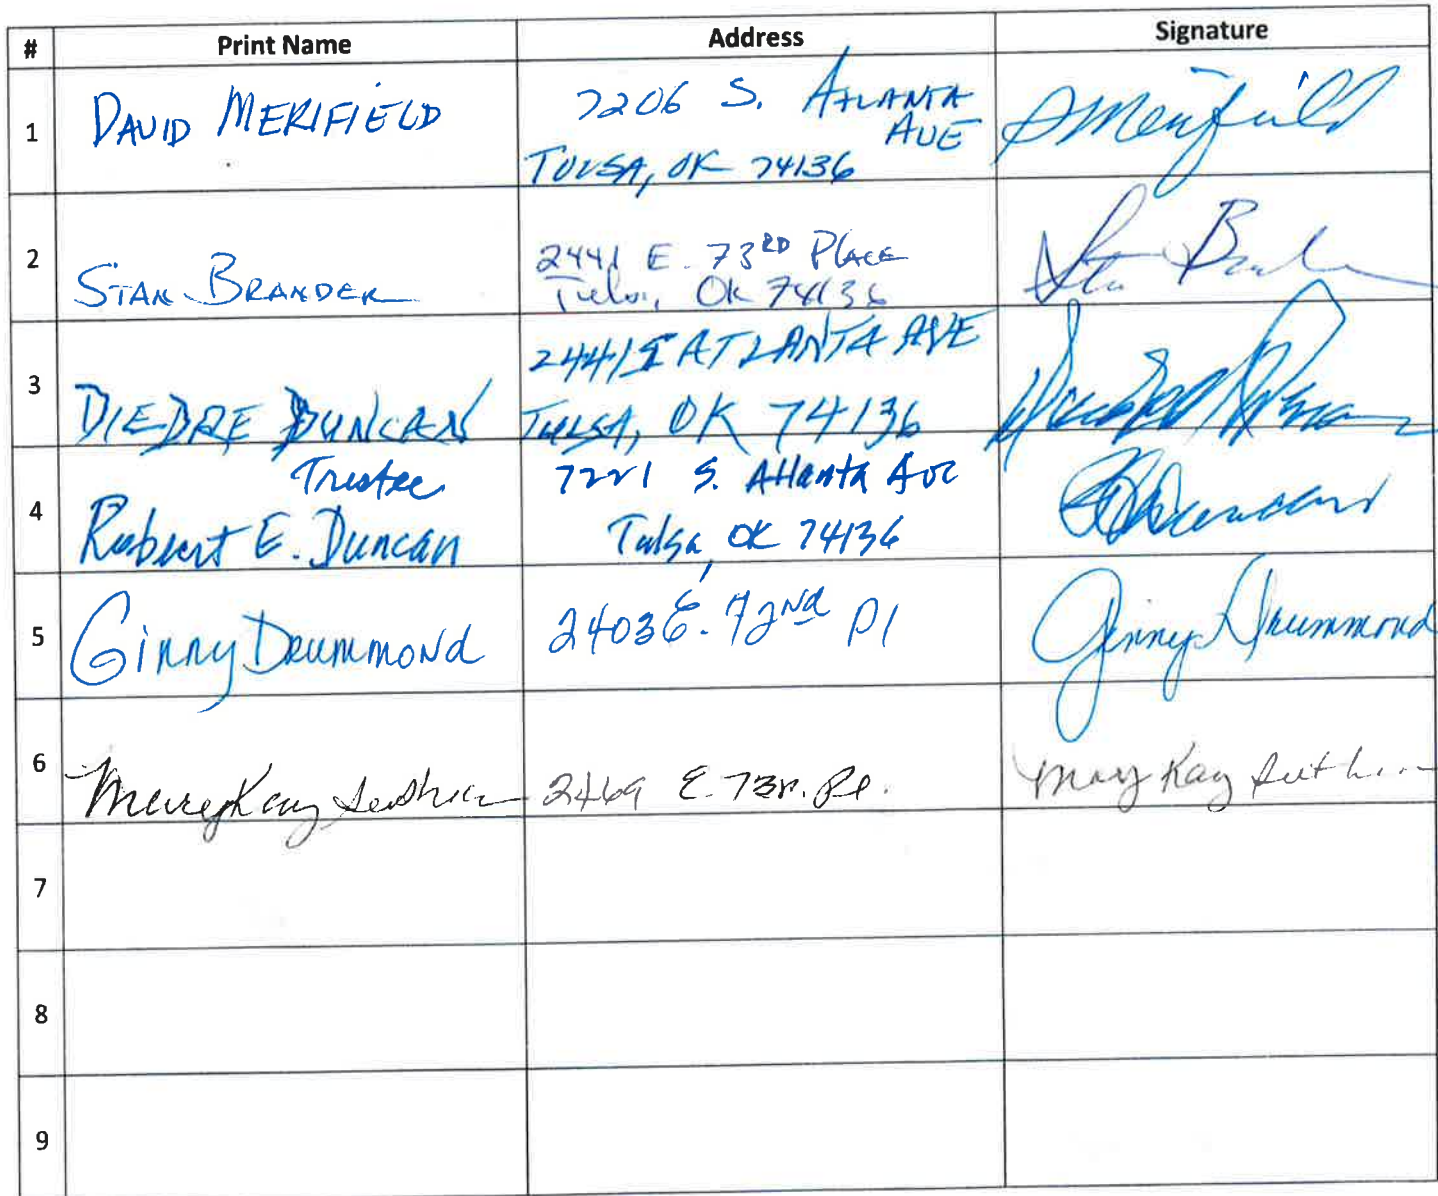 # Print Name Address Signature
1 DAVID MERIFIELD 7206 S. ATLANTA AVE
TULSA, OK 74136
DMerifield
2 STAN BRANDER 2441 E. 73RD PLACE
Tulsa, OK 74136
Stan
3 DIEDRE DUNCAN 2441 S ATLANTA AVE
TULSA, OK 74136
4 Trustee
Robert E. Duncan 7221 S. Atlanta Ave
Tulsa, OK 74136
Duncan
5 Ginny Drummond 2403 E. 72nd Pl Ginny Drummond
6 Mary Kay 2469 E. 73r. Pl. Mary Kay
7
8
9